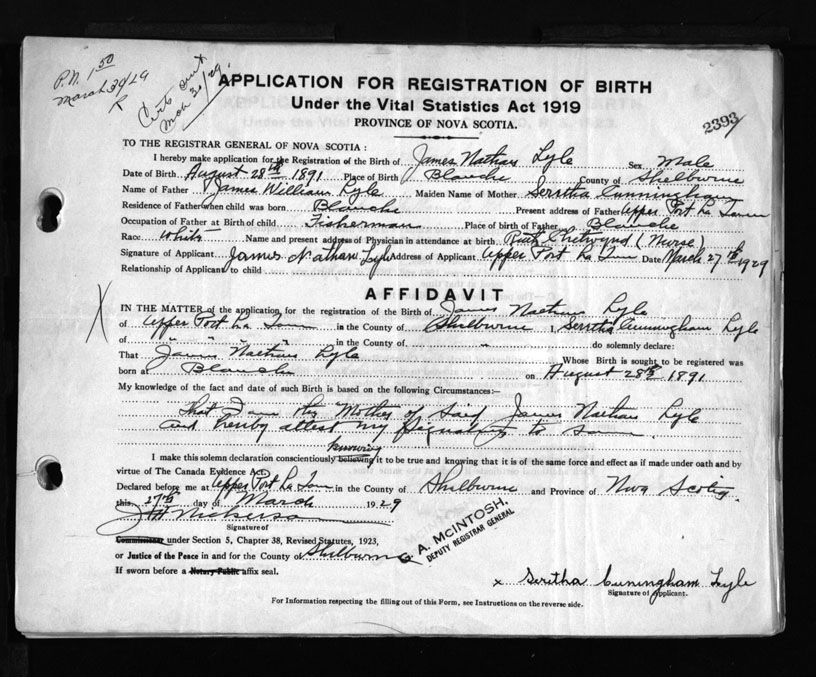 P.N. 1.50
March 30/29
Certs sent
Mch 30/29
APPLICATION FOR REGISTRATION OF BIRTH
Under the Vital Statistics Act 1919
PROVINCE OF NOVA SCOTIA.
2393
TO THE REGISTRAR GENERAL OF NOVA SCOTIA :
I hereby make application for the Registration of the Birth of James Nathan Lyle Sex Male
Date of Birth August 28th 1891 Place of Birth Blanche County of Shelburne
Name of Father James William Lyle Maiden Name of Mother Seretha Cunningham
Residence of Father when child was born Blanche Present address of Father Upper Port La Tour
Occupation of Father at Birth of child Fisherman Place of birth of Father Blanche
Race White Name and present address of Physician in attendance at birth Ruth Chetwynd (Nurse)
Signature of Applicant James Nathan Lyle Address of Applicant Upper Port La Tour Date March 27th 1929
Relationship of Applicant to child
AFFIDAVIT
X
IN THE MATTER of the application, for the registration of the Birth of James Nathan Lyle
of Upper Port La Tour in the County of Shelburne I, Seretha Cunningham Lyle
of " " " " in the County of " do solemnly declare:
That James Nathan Lyle Whose Birth is sought to be registered was
born at Blanche on August 28th 1891
My knowledge of the fact and date of such Birth is based on the following Circumstances:—
That I am the Mother of said James Nathan Lyle
and hereby attest my signature to same.
knowing
I make this solemn declaration conscientiously believing it to be true and knowing that it is of the same force and effect as if made under oath and by
virtue of The Canada Evidence Act.
Declared before me at Upper Port La Tour in the County of Shelburne and Province of Nova Scotia.
this 27th day of March 1929
J H Nickerson
Signature of
Commissioner under Section 5, Chapter 38, Revised Statutes, 1923,
or Justice of the Peace in and for the County of Shelburne
If sworn before a Notary Public affix seal.
A. McINTOSH.
DEPUTY REGISTRAR GENERAL
x Seretha Cuningham Lyle
Signature of Applicant.
For Information respecting the filling out of this Form, see Instructions on the reverse side.